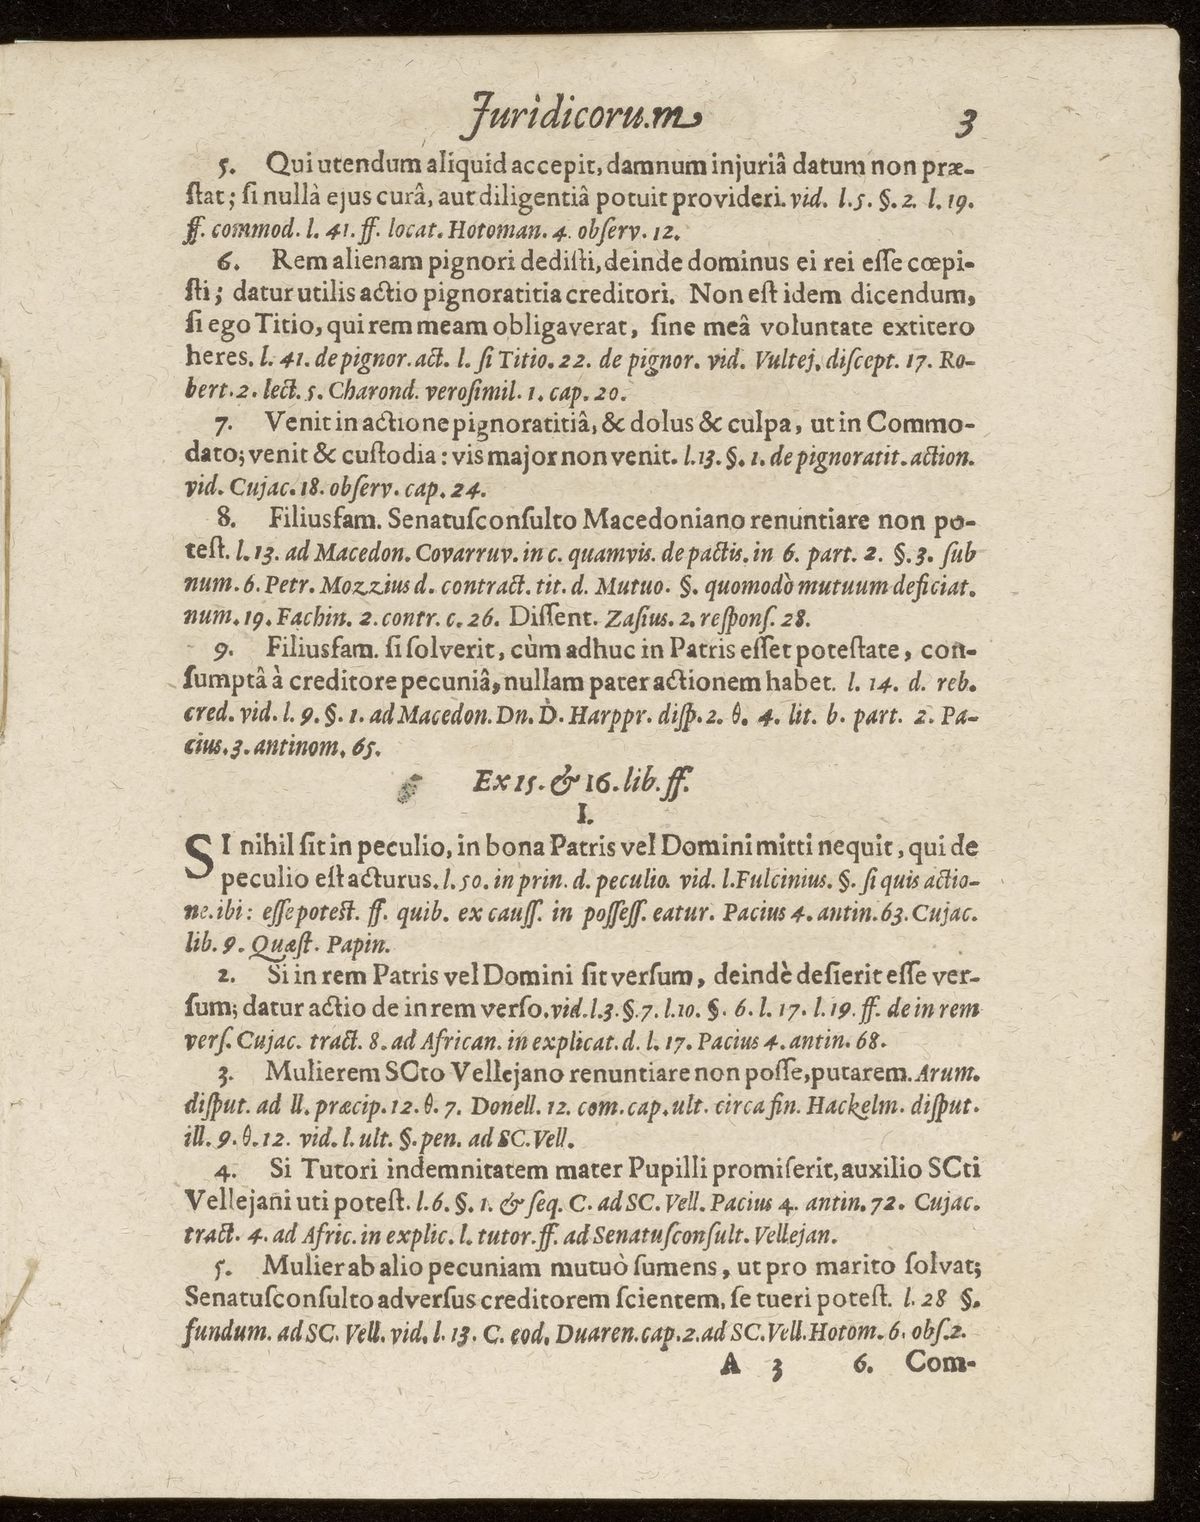 Juridicorum 3
5. Qui utendum aliquid accepit, damnum injuriâ datum non præ-
ſtat; ſi nullà ejus curâ, aut diligentiâ potuit provideri. vid. l. 5. §. 2. l. 19.
ff. commod. l. 41. ff. locat. Hotoman. 4. obſerv. 12.
6. Rem alienam pignori dediſti, deinde dominus ei rei eſſe cœpi-
ſti; datur utilis actio pignoratitia creditori. Non eſt idem dicendum,
ſi ego Titio, qui rem meam obligaverat, ſine meâ voluntate extitero
heres. l. 41. de pignor. act. l. ſi Titio. 22. de pignor. vid. Vultej. diſcept. 17. Ro-
bert. 2. lect. 5. Charond. veroſimil. 1. cap. 20.
7. Venit in actione pignoratitiâ, & dolus & culpa, ut in Commo-
dato; venit & cuſtodia: vis major non venit. l. 13. §. 1. de pignoratit. action.
vid. Cujac. 18. obſerv. cap. 24.
8. Filiusfam. Senatuſconſulto Macedoniano renuntiare non po-
teſt. l. 13. ad Macedon. Covarruv. in c. quamvis. de pactis. in 6. part. 2. §. 3. ſub
num. 6. Petr. Mozzius d. contract. tit. d. Mutuo. §. quomodò mutuum deficiat.
num. 19. Fachin. 2. contr. c. 26. Diſſent. Zaſius. 2. reſponſ. 28.
9. Filiusfam. ſi ſolverit, cùm adhuc in Patris eſſet poteſtate, con-
ſumptâ à creditore pecuniâ, nullam pater actionem habet. l. 14. d. reb.
cred. vid. l. 9. §. 1. ad Macedon. Dn. D. Harppr. diſp. 2. θ. 4. lit. b. part. 2. Pa-
cius. 3. antinom. 65.
Ex 15. & 16. lib. ff.
I.
SI nihil ſit in peculio, in bona Patris vel Domini mitti nequit, qui de
peculio eſt acturus. l. 50. in prin. d. peculio. vid. l. Fulcinius. §. ſi quis actio-
ne. ibi: eſſe poteſt. ff. quib. ex cauſſ. in poſſeſſ. eatur. Pacius 4. antin. 63. Cujac.
lib. 9. Quæſt. Papin.
2. Si in rem Patris vel Domini ſit verſum, deindè deſierit eſſe ver-
ſum; datur actio de in rem verſo. vid. l. 3. §. 7. l. 10. §. 6. l. 17. l. 19. ff. de in rem
verſ. Cujac. tract. 8. ad African. in explicat. d. l. 17. Pacius 4. antin. 68.
3. Mulierem SCto Vellejano renuntiare non poſſe, putarem. Arum.
diſput. ad ll. præcip. 12. θ. 7. Donell. 12. com. cap. ult. circa fin. Hackelm. diſput.
ill. 9. θ. 12. vid. l. ult. §. pen. ad SC. Vell.
4. Si Tutori indemnitatem mater Pupilli promiſerit, auxilio SCti
Vellejani uti poteſt. l. 6. §. 1. & ſeq. C. ad SC. Vell. Pacius 4. antin. 72. Cujac.
tract. 4. ad Afric. in explic. l. tutor. ff. ad Senatuſconſult. Vellejan.
5. Mulier ab alio pecuniam mutuò ſumens, ut pro marito ſolvat;
Senatuſconſulto adverſus creditorem ſcientem, ſe tueri poteſt. l. 28 §.
fundum. ad SC. Vell. vid. l. 13. C. eod. Duaren. cap. 2. ad SC. Vell. Hotom. 6. obſ. 2.
A 3 6. Com-